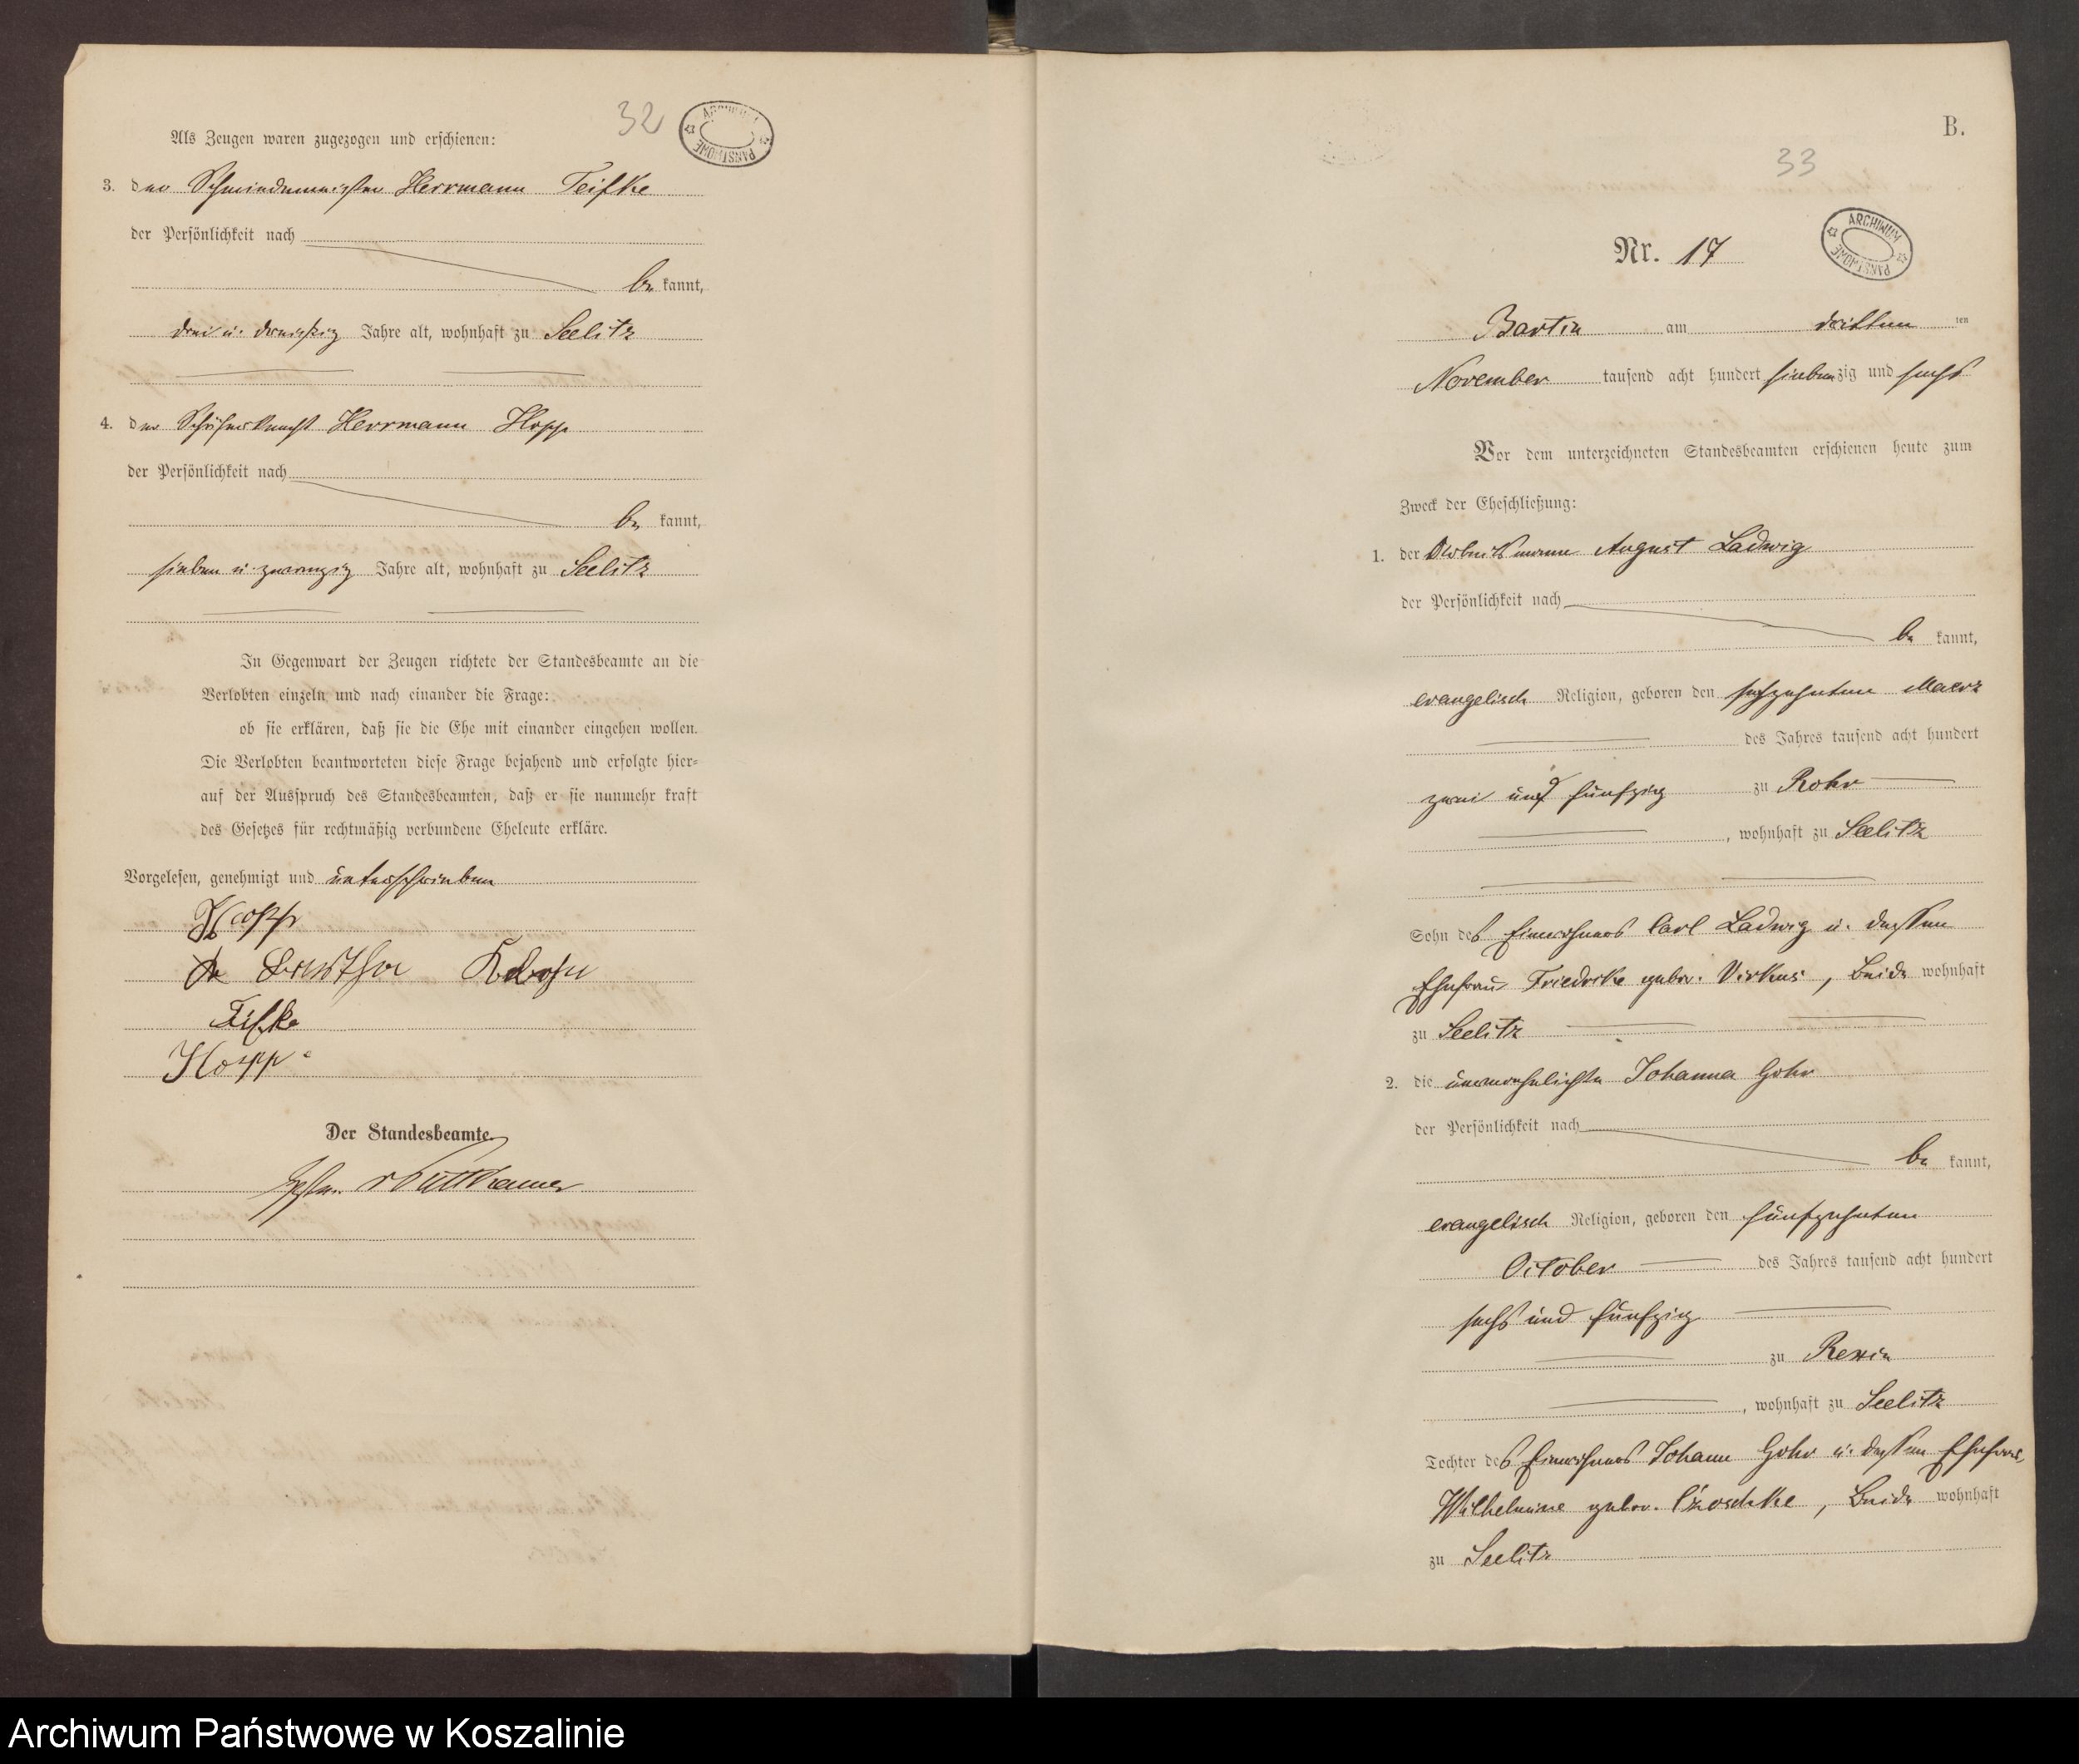 32
ARCHIWUM PAŃSTWOWE
Als Zeugen waren zugezogen und erschienen:
3. der Schmiedemeister Herrmann Teifke
der Persönlichkeit nach
be kannt,
drei u. dreißig Jahre alt, wohnhaft zu Seelitz
4. der Schäferknecht Herrmann Hopp
der Persönlichkeit nach
be kannt,
sieben u. zwanzig Jahre alt, wohnhaft zu Seelitz
In Gegenwart der Zeugen richtete der Standesbeamte an die
Verlobten einzeln und nach einander die Frage:
ob sie erklären, daß sie die Ehe mit einander eingehen wollen.
Die Verlobten beantworteten diese Frage bejahend und erfolgte hier-
auf der Ausspruch des Standesbeamten, daß er sie nunmehr kraft
des Gesetzes für rechtmäßig verbundene Eheleute erkläre.
Vorgelesen, genehmigt und unterschrieben
Hopp
Teifke
Hopp
Der Standesbeamte.
v Puttkamer
B.
33
ARCHIWUM PAŃSTWOWE
Nr. 17
Bartin am dritten ten
November tausend acht hundert siebenzig und sechs
Vor dem unterzeichneten Standesbeamten erschienen heute zum
Zweck der Eheschließung:
1. der Arbeitsmann August Ladwig
der Persönlichkeit nach
be kannt,
evangelisch Religion, geboren den sechzehnten Maerz
des Jahres tausend acht hundert
zwei und fünfzig zu Rohr
, wohnhaft zu Seelitz
Sohn des Einwohners Carl Ladwig u. dessen
Ehefrau Friedrike gebor. Virkus, Beide wohnhaft
zu Seelitz
2. die unverehelichte Johanna Gohr
der Persönlichkeit nach
be kannt,
evangelisch Religion, geboren den fünfzehnten
October des Jahres tausend acht hundert
sechs und fünfzig
zu Reddin
, wohnhaft zu Seelitz
Tochter des Einwohners Johann Gohr u. dessen Ehefrau,
Wilhelmine gebor. Czoschke, Beide wohnhaft
zu Seelitz
Archiwum Państwowe w Koszalinie